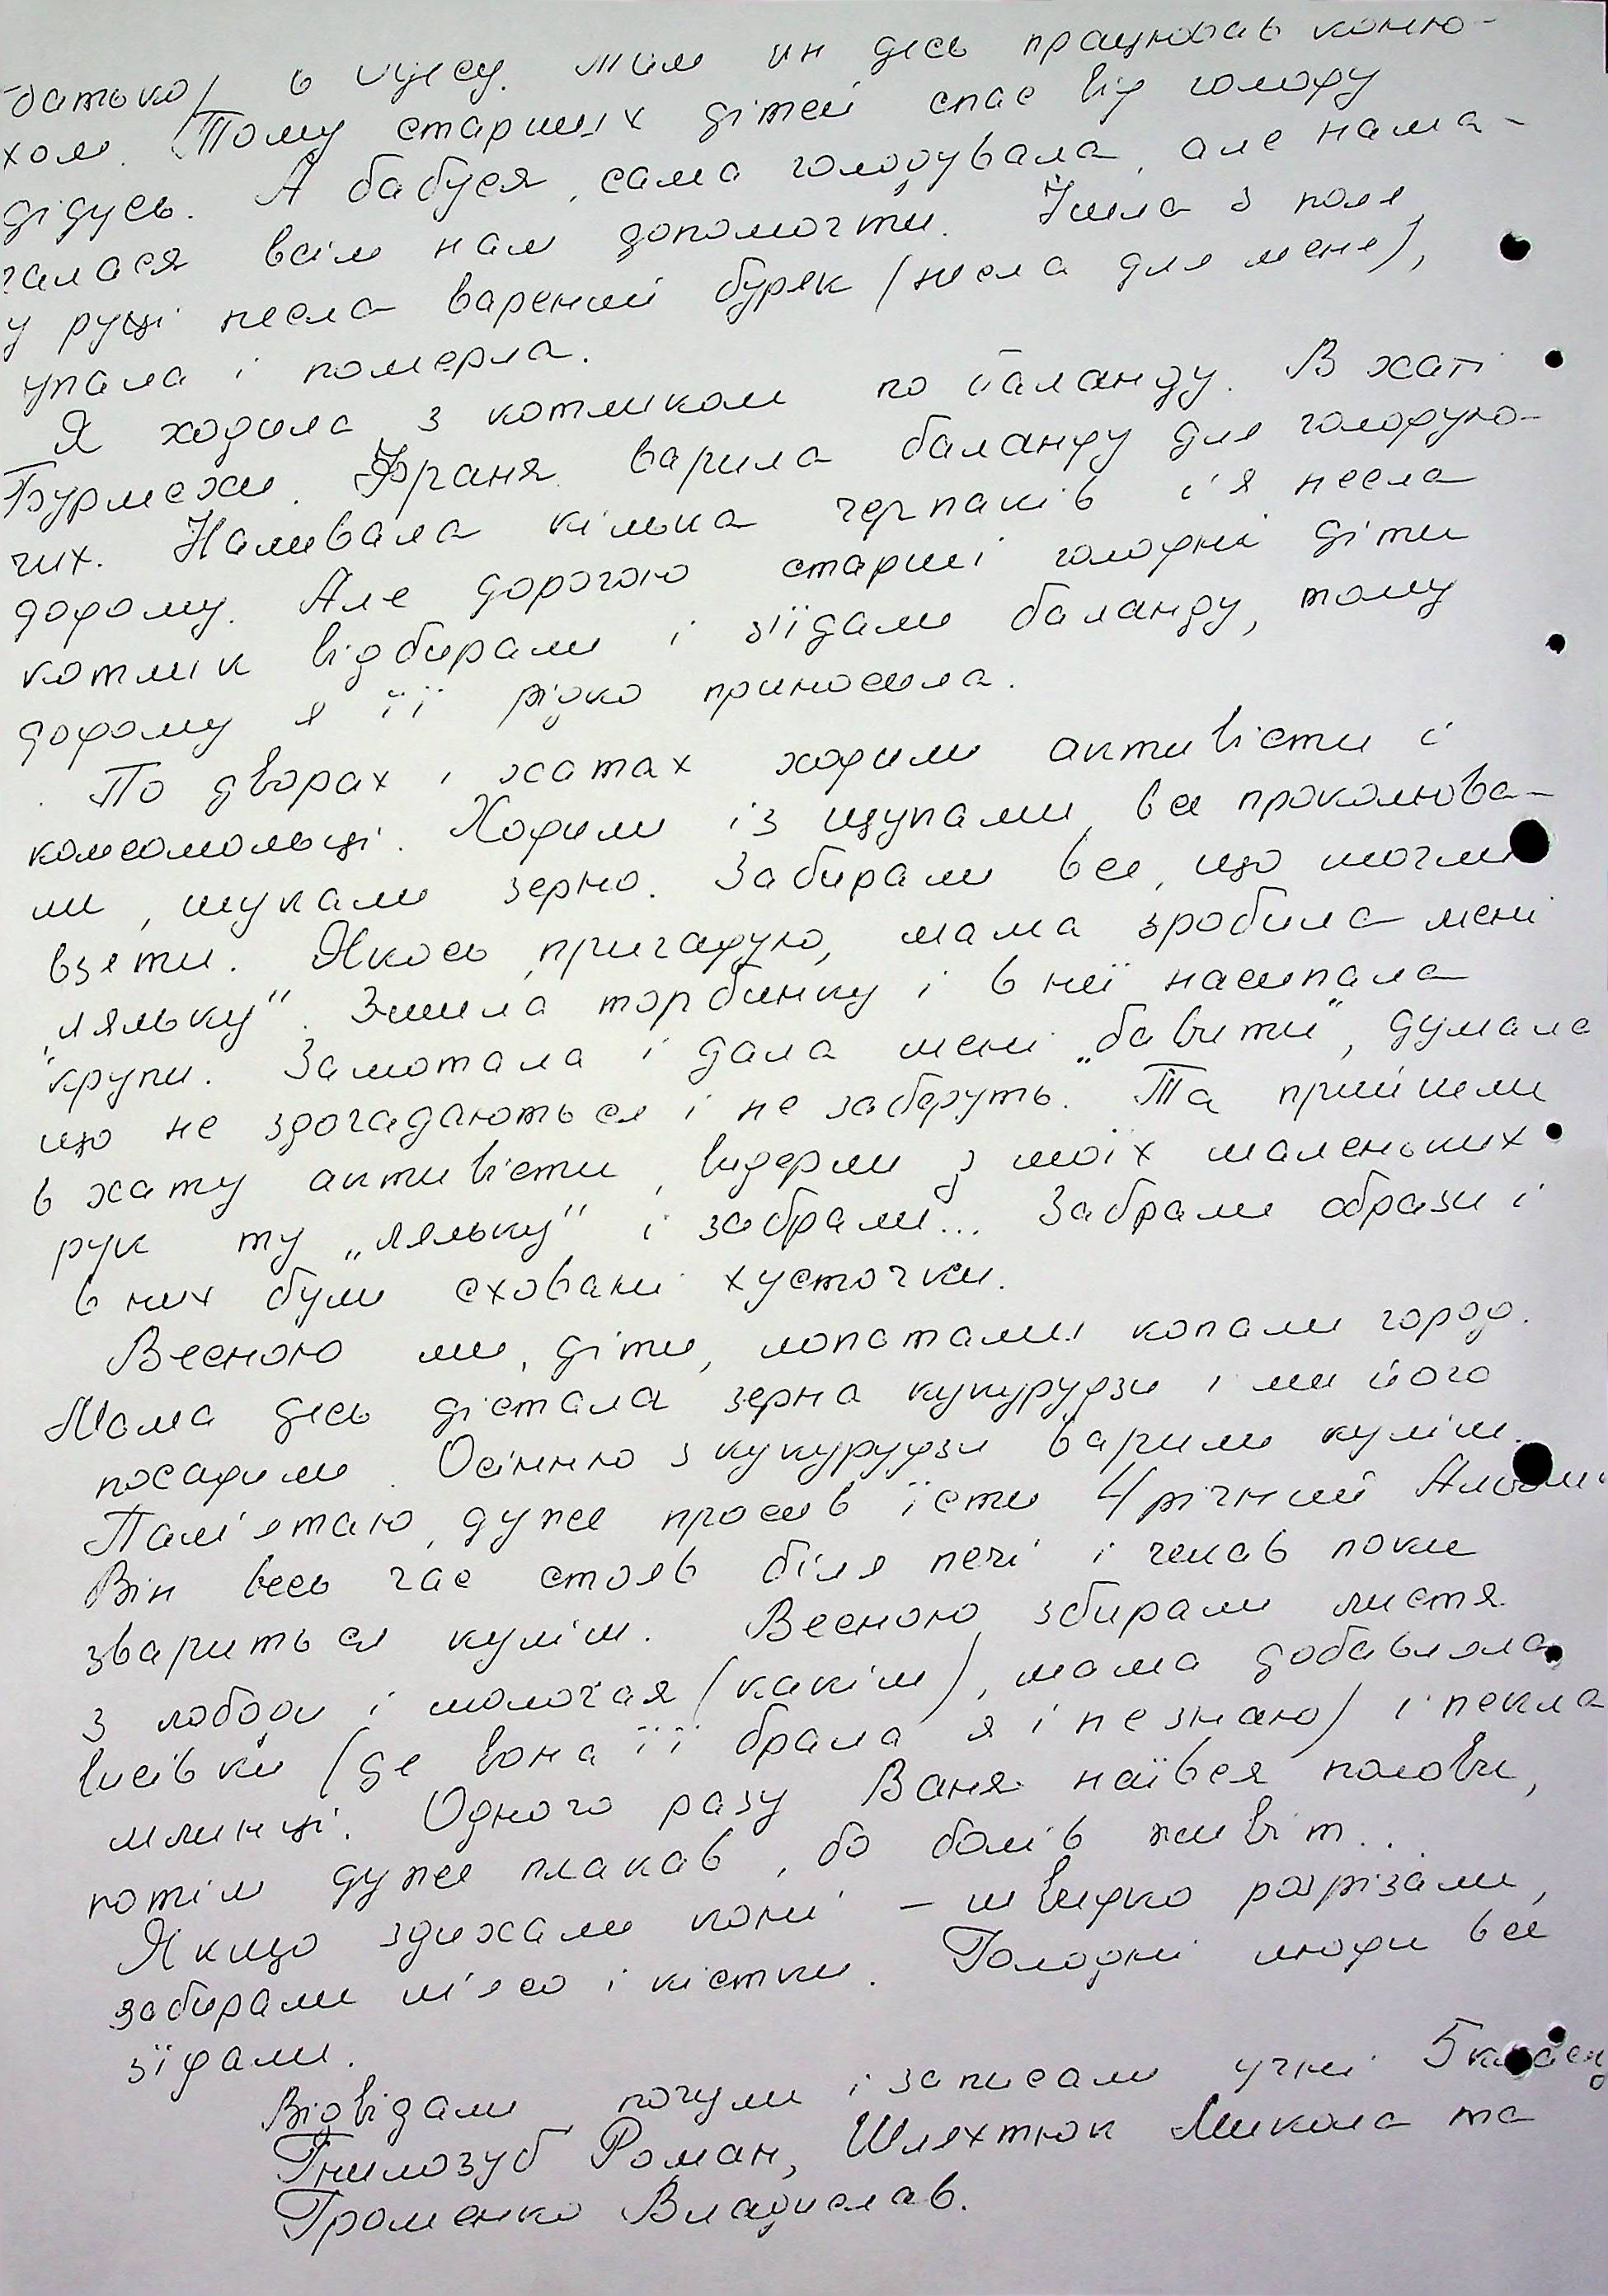 батько) в Одесу. Там він десь працював коню-
хом. Тому старших дітей спас від голоду
дідусь. А бабуся, сама голодувала, але нама-
галася всім нам допомогти. Ішла з поля,
у руці несла варений буряк (несла для мене),
упала і померла.
Я ходила з котликом по баланду. В хаті
Бурмехи Франя варила баланду для голодую-
чих. Наливала кілька черпаків і я несла
додому. Але дорогою старші голодні діти
котлик відбирали і з'їдали баланду, тому
додому я її рідко приносила.
По дворах і хатах ходили активісти і
комсомольці. Ходили із щупами, все проколюва-
ли, шукали зерно. Забирали все, що могли
взяти. Якось, пригадую, мама зробила мені
„ляльку". Зшила торбинку і в неї насипала
крупи. Замотала і дала мені „бавити", думала
що не здогадаються і не заберуть. Та прийшли
в хату активісти, видерли з моїх маленьких
рук ту „ляльку" і забрали... Забрали образи і
в них були сховані хусточки.
Весною ми, діти, лопатами копали город.
Мама десь дістала зерна кукурудзи і ми його
посадили. Осінню з кукурудзи варили куліш.
Пам'ятаю, дуже просив їсти 4/річний
Він весь час стояв біля печі і чекав поки
звариться куліш. Весною збирали листя
з лободи і молочая (какіш), мама добавляла
висівки (де вона її брала я і не знаю) і пекла
млинці. Одного разу Ваня наївся полови,
потім дуже плакав, бо болів живіт..
Якщо здихали коні – швидко розрізали,
забирали м'ясо і кістки. Голодні люди все
зїдали.
Відвідали, почули і записали учні 5 класу
Гнилозуб Роман, Шляхтюк Микола та
Громенко Владислав.